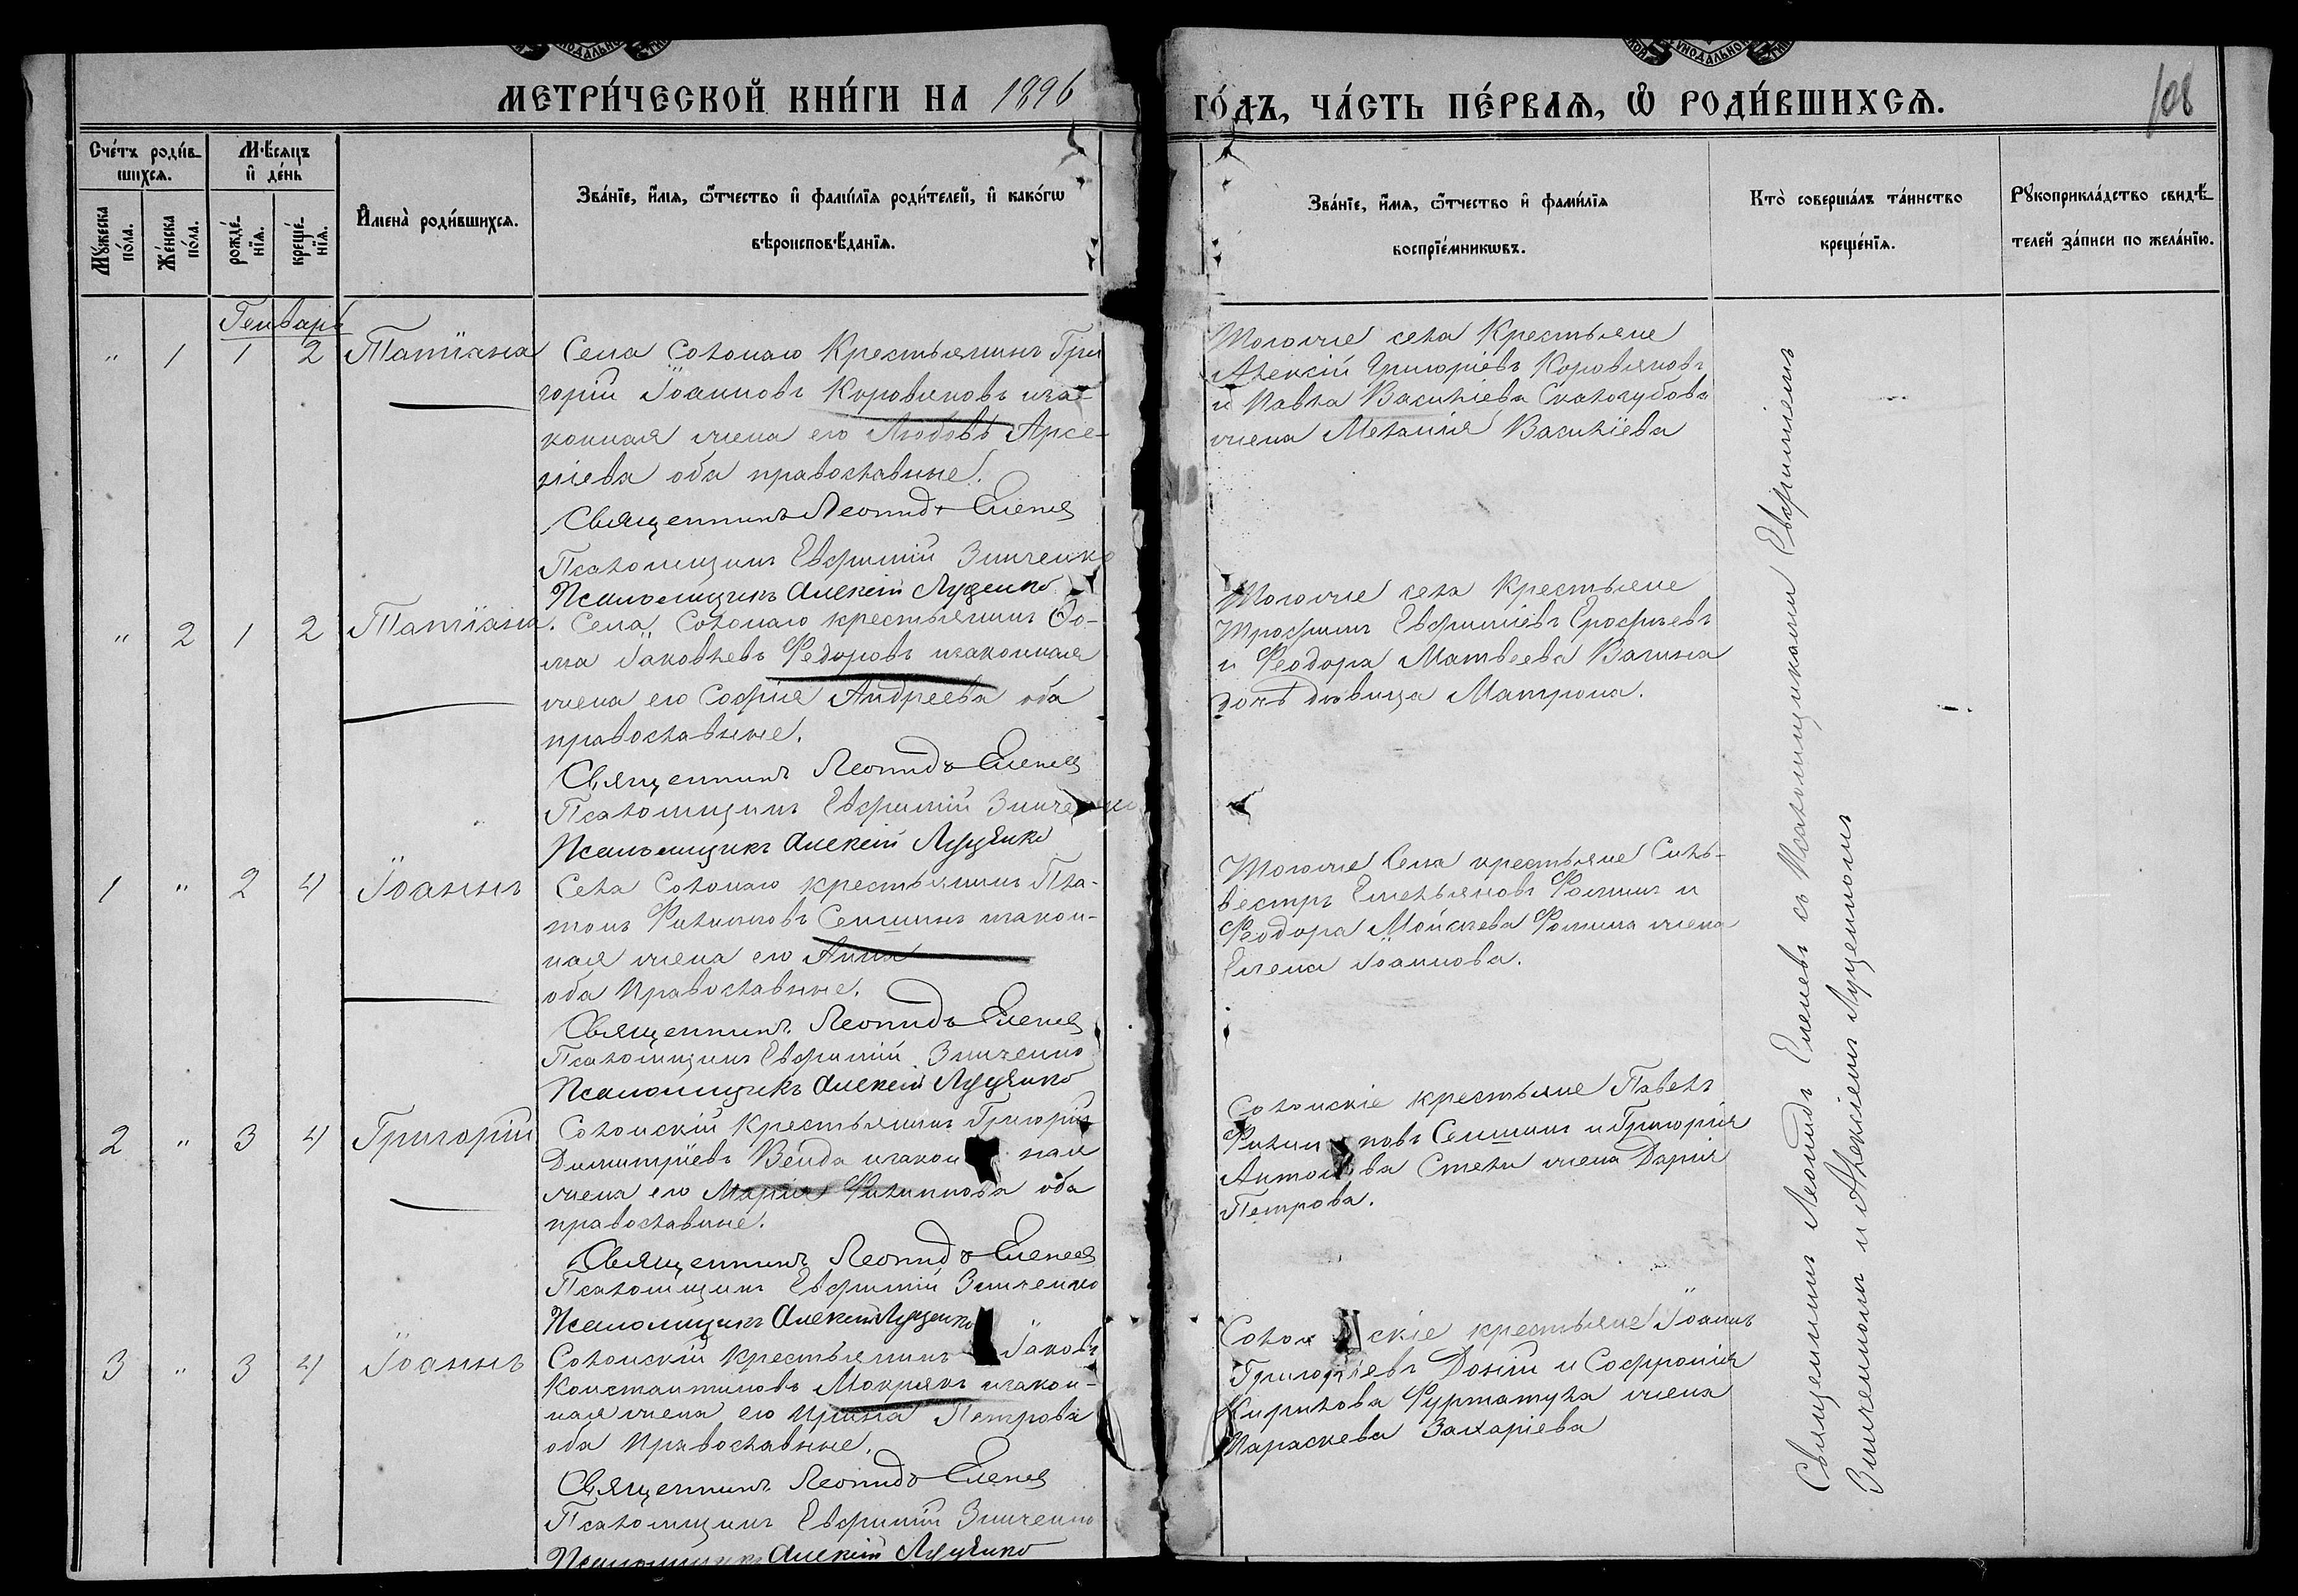 МЕТРИ́ЧЕСКОЙ КНИ́ГИ НА 1896
ГО́ДЪ, ЧА́СТЬ ПЕ́РВАѦ, Ѽ РОДИ́ВШИХСѦ.
108
Сче́тъ роди́в-
шихсѧ.
Мѣ́сяцъ
и҆ де́нь
Мꙋ́жеска
по́ла.
Же́нска
по́ла.
рожде́-
нїѧ.
креще́-
нїѧ.
И҆мена̀ роди́вшихсѧ.
Зва́нїе, и҆́мѧ, ѻ҆́тчество и҆ фамі́лїѧ роди́телей, и҆ како́гѡ
вѣроисповѣ́данїѧ.
Зва́нїе, и҆́мѧ, ѻ҆́тчество и҆ фами́лїѧ
воспрїе́мникѡвъ.
Кто̀ соверша́лъ та́инство
креще́нїѧ.
Рꙋкоприкла́дство свидѣ́-
телей за́писи по жела́нїю.
Генварь
" 1 1 2 Татіана
Села Солонаго Крестьянинъ Гри
горій Іоанновъ Коровяковъ иза-
конная жена его Любовь Арсе-
ніева оба православные.
Священникъ Леонидъ Еленев
Псаломщикъ Евфимій Зинченко
Псаломщикъ Алексій Луценко
Тогоже села Крестьяне
Алексій Григоріевъ Коровяковъ
и Павла Василіева Скалозубова
жена Меланія Василіева
" 2 1 2 Татіана.
Села Солонаго крестьянинъ Ѳо-
ма Іаковлевъ Федоровъ изаконная
жена его Софія Андреева оба
православные.
Священникъ Леонидъ Еленев
Псаломщикъ Евфимій Зинченко
Псаломщикъ Алексій Луценко
Тогоже села Крестьяне
Трофимъ Евфиміевъ Ерофѣевъ
и Феодора Матвѣева Вагина
дочь дѣвица Матрона.
1 " 2 4 Іоаннъ
Села Солонаго крестьянинъ Пла-
тонъ Филипповъ Семшинъ изакон-
ная жена его Анна
оба Православные.
Священникъ Леонидъ Еленев
Псаломщикъ Евфимій Зинченко
Псаломщикъ Алексій Луценко
Тогоже Села крестьяне Силь-
вестръ Емельяновъ Фоминъ и
Феодора Мойсѣева Фомина жена
Елена Іоаннова.
2 " 3 4 Григорій
Солонскій Крестьянинъ Григорій
Димитріевъ Венда изакон ная
жена его Марія Филиппова оба
православные.
Священникъ Леонидъ Еленев
Псаломщикъ Евфимій Зинченко
Псаломщикъ Алексій Луценко
Солонскіе крестьяне Павелъ
Филип повъ Семшинъ и Григорія
Антонова жена Дарія
Петрова.
3 " 3 4 Іоаннъ
Солонскій Крестьянинъ Іаковъ
Константиновъ Мокрякъ изакон-
ная жена его Ирина Петрова
оба Православные.
Священникъ Леонидъ Еленев
Псаломщикъ Евфимій Зинченко
Псаломщикъ Алексій Луценко
Солон скіе крестьяне Іоаннъ
Григоріевъ и Софронія
Кирилова жена
Параскева Захаріева
Священникъ Леонидъ Еленевъ съ Псаломщиками Евфиміемъ
Зинченкомъ и Алексіемъ Луценкомъ